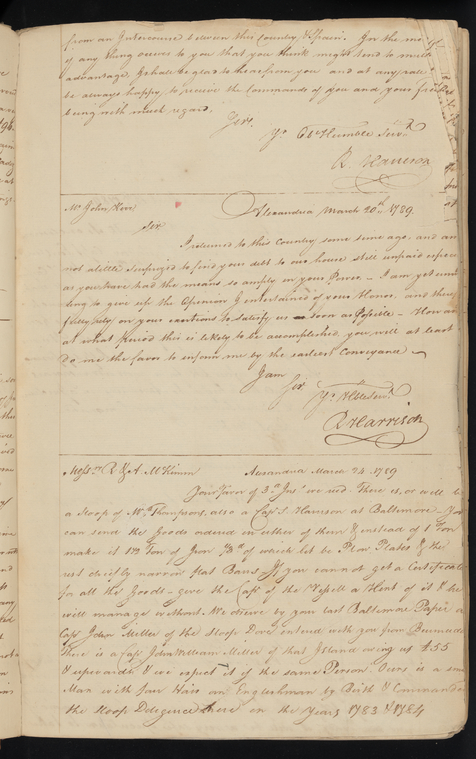 from an Intercourse between this Country & Spain. For the me
if any thing occurs to you that you think might tend to mutl
advantage, I shall be glad to hear from you and at any rate
be always happy, to receive the Commands of you and your frie
being with much regard,
Sir,
Yr. Obt. Humble Servt.
R. Harrison
Mr. John
Alexandria March 20th. 1789.
Sir
I returned to this Country some time ago, and am
not a little surprized to find your debt to our house still unpaid especi
as you have had the means so amply in your Power. – I am yet unwil
ling to give up the Opinion I entertained of your Honor, and there
fully rely on your exertions to satisfy us as soon as Possible – How an
at what period this is likely to be accomplished, you will at least
do me the favor to inform me by the earliest Conveyance
I am
Sir
Yr. Hble Servt.
R. Harrison
Messrs. R & A. McKimm Alexandria March 24. 1789
Your Favor of 3d. Inst. we recd. There is, or will be
a Sloop of Wm. Thompsons, also a Capt. Harrison at Baltimore – You
can send the Goods ordered in either of them & instead of 1 Ton
make it 1½ Ton of Iron of which let be Plow Plates & the
rest chiefly narrow flat Bars – If you cannot get a Certificate
for all the Goods – give the Capt. of the Vessell a Hint of it & he
will manage without. We observe by your last Baltimore Paper a
Capt. John Miller of the Sloop Dove entered with you from Bermuda
There is a Capt. John William Miller of that Island owing us £55
& upwards & we expect it is the same Person. Ours is a
Man with fair Hair an Englishman by Birth & Commanded
the Sloop Delegence here in the Years 1783 & 1784